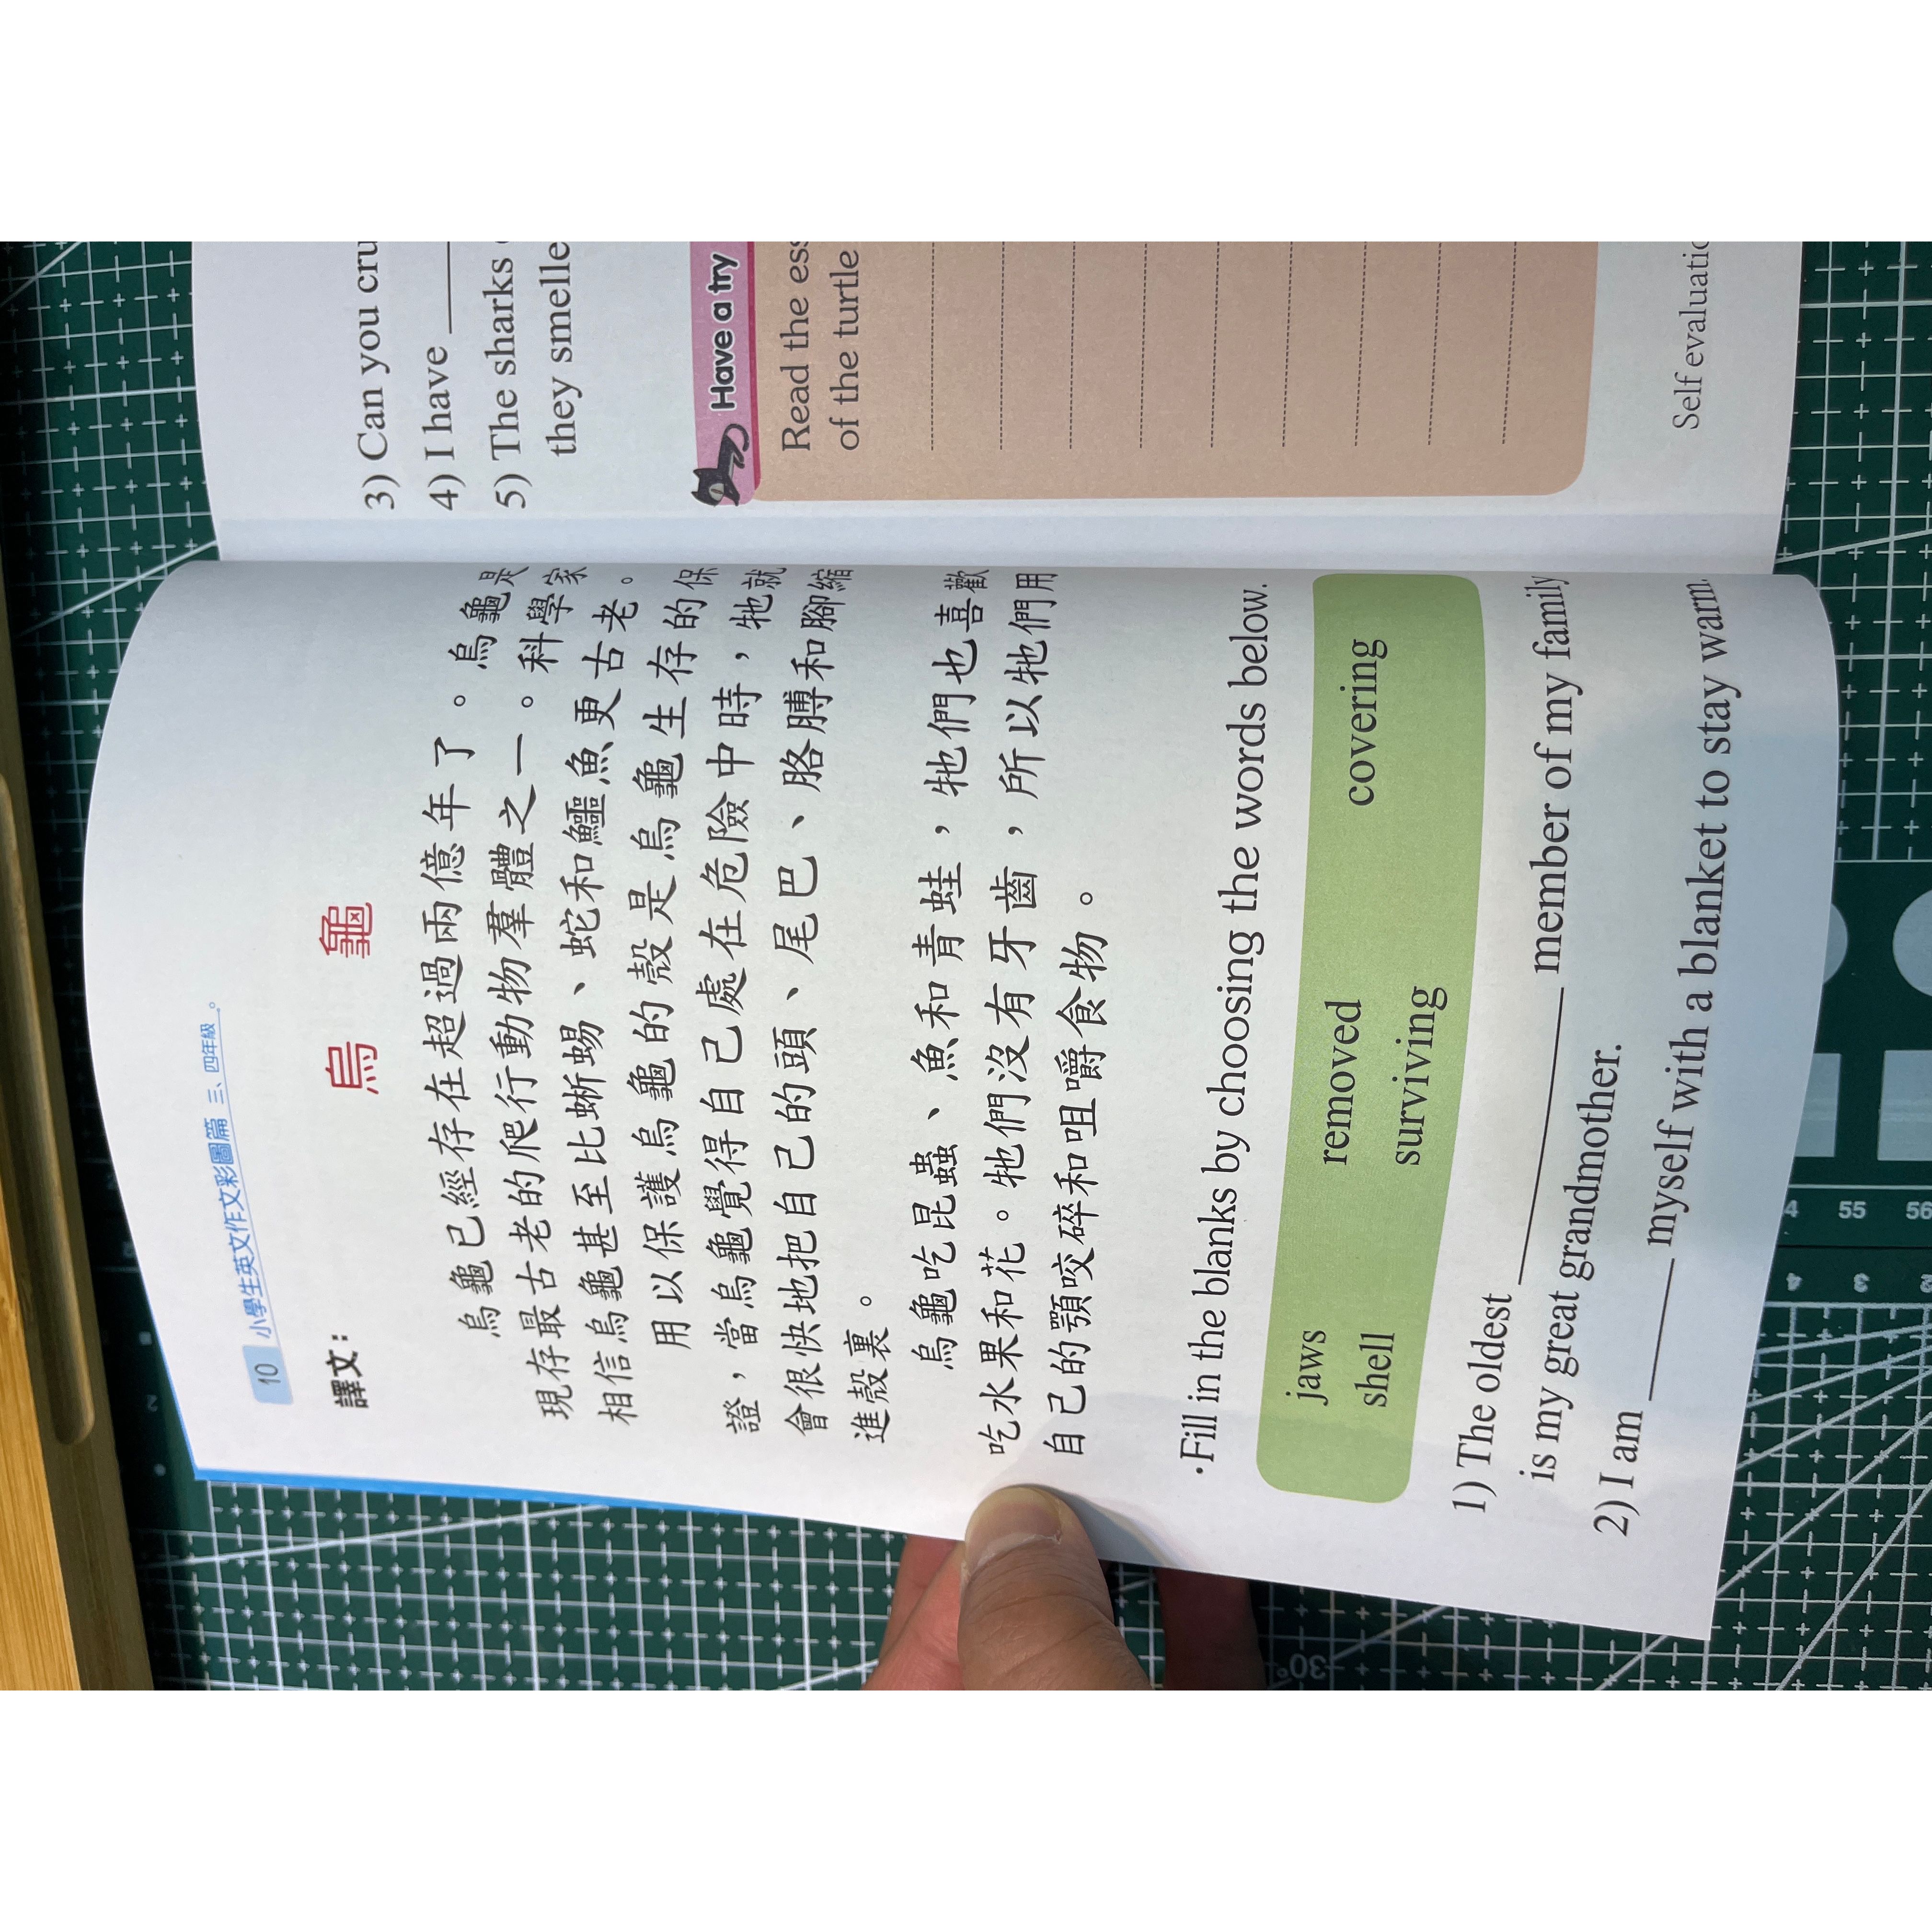 10 小學生英文作文彩圖篇 三、四年級
譯文：
烏 龜
烏龜已經存在超過兩億年了。烏龜是
現存最古老的爬行動物羣體之一。科學家
相信烏龜甚至比蜥蜴、蛇和鱷魚更古老。
用以保護烏龜的殼是烏龜生存的保
證，當烏龜覺得自己處在危險中時，牠就
會很快地把自己的頭、尾巴、胳膊和腳縮
進殼裏。
烏龜吃昆蟲、魚和青蛙，牠們也喜歡
吃水果和花。牠們沒有牙齒，所以牠們用
自己的顎咬碎和咀嚼食物。
·Fill in the blanks by choosing the words below.
jaws removed covering
shell surviving
1) The oldest ________ member of my family
is my great grandmother.
2) I am ________ myself with a blanket to stay warm.
3) Can you cru
4) I have ________
5) The sharks
they smelle
Have a try
Read the es
of the turtle
Self evaluatio
55
56
4
3
30°